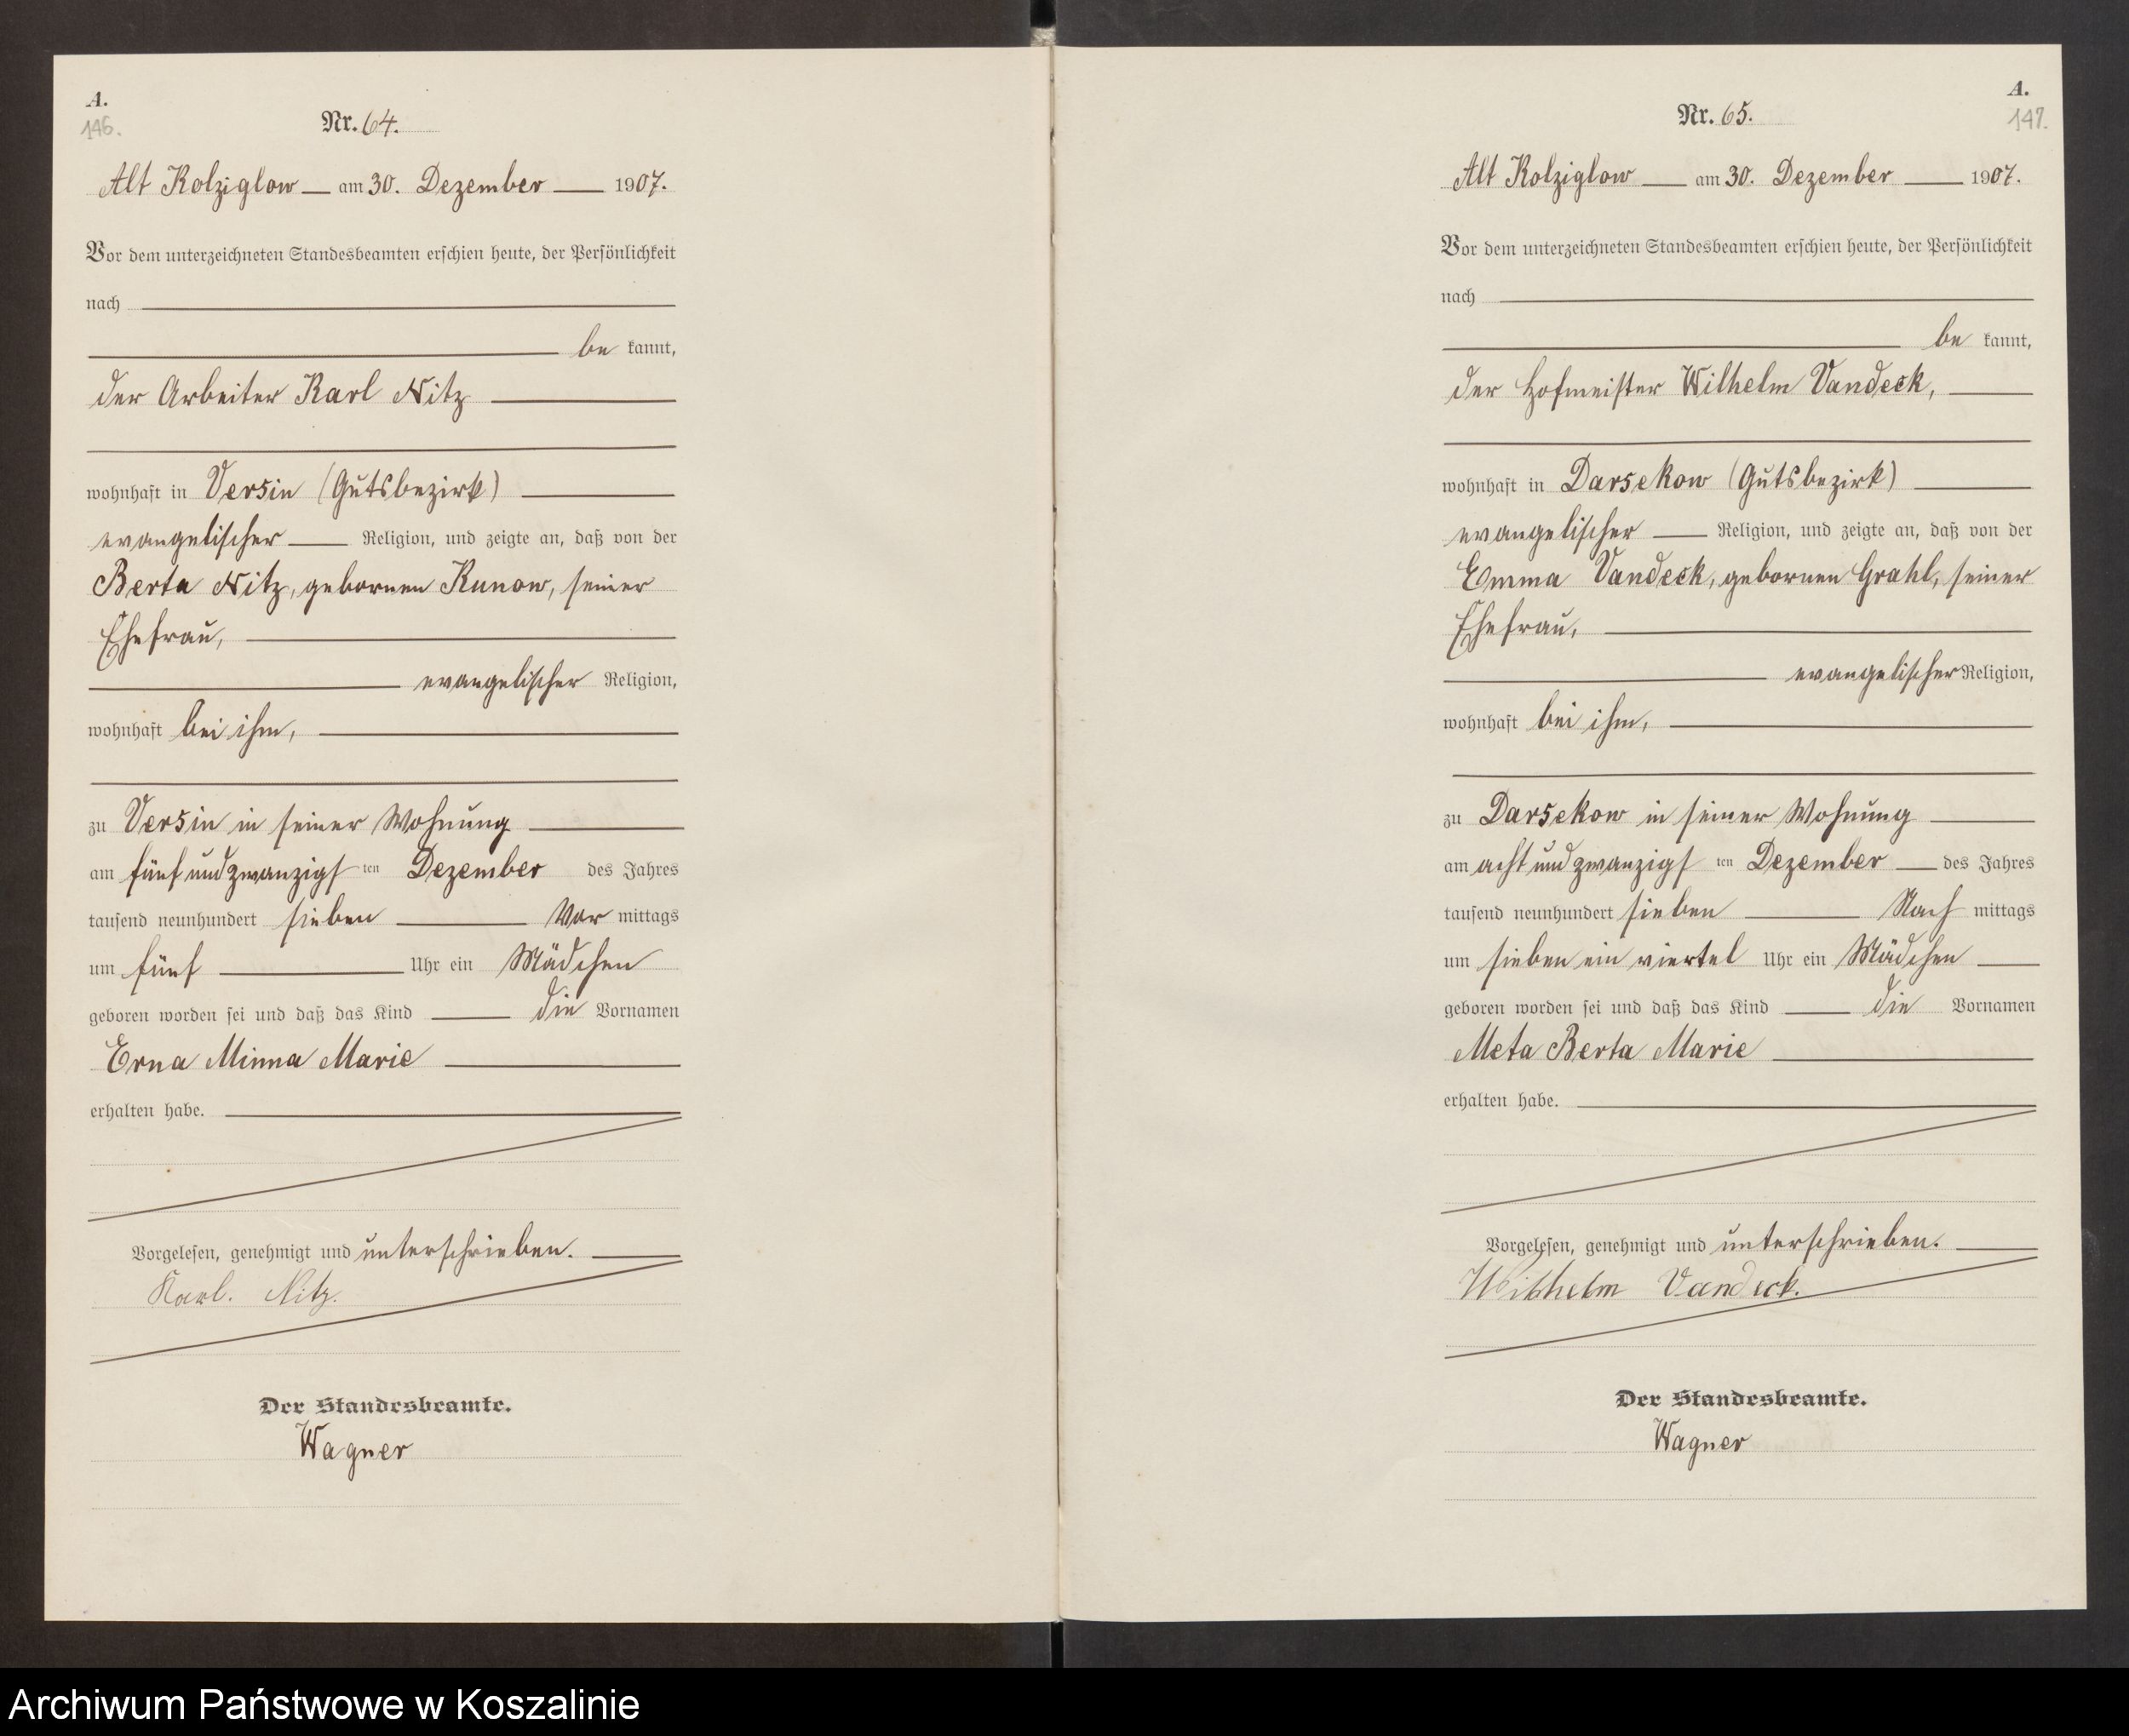 A.
146.
Nr. 64.
Alt Kolziglow am 30. Dezember 1907.
Vor dem unterzeichneten Standesbeamten erschien heute, der Persönlichkeit
nach
be kannt,
der Arbeiter Karl Nitz
wohnhaft in Versin (Gutsbezirk)
evangelischer Religion, und zeigte an, daß von der
Berta Nitz, gebornen Kunow, seiner
Ehefrau,
evangelischer Religion,
wohnhaft bei ihm,
zu Versin in seiner Wohnung
am fünf und zwanzigs ten Dezember des Jahres
tausend neunhundert sieben Vor mittags
um fünf Uhr ein Mädchen
geboren worden sei und daß das Kind die Vornamen
Erna Minna Marie
erhalten habe.
Vorgelesen, genehmigt und unterschrieben.
Karl. Nitz.
Der Standesbeamte.
Wagner
A.
147.
Nr. 65.
Alt Kolziglow am 30. Dezember 1907.
Vor dem unterzeichneten Standesbeamten erschien heute, der Persönlichkeit
nach
be kannt,
der Hofmeister Wilhelm Vandeck,
wohnhaft in Darsekow (Gutsbezirk)
evangelischer Religion, und zeigte an, daß von der
Emma Vandeck, gebornen Grahl, seiner
Ehefrau,
evangelischer Religion,
wohnhaft bei ihm,
zu Darsekow in seiner Wohnung
am acht und zwanzigs ten Dezember des Jahres
tausend neunhundert sieben Nach mittags
um sieben ein viertel Uhr ein Mädchen
geboren worden sei und daß das Kind die Vornamen
Meta Berta Marie
erhalten habe.
Vorgelesen, genehmigt und unterschrieben.
Wilhelm Vandeck.
Der Standesbeamte.
Wagner
Archiwum Państwowe w Koszalinie